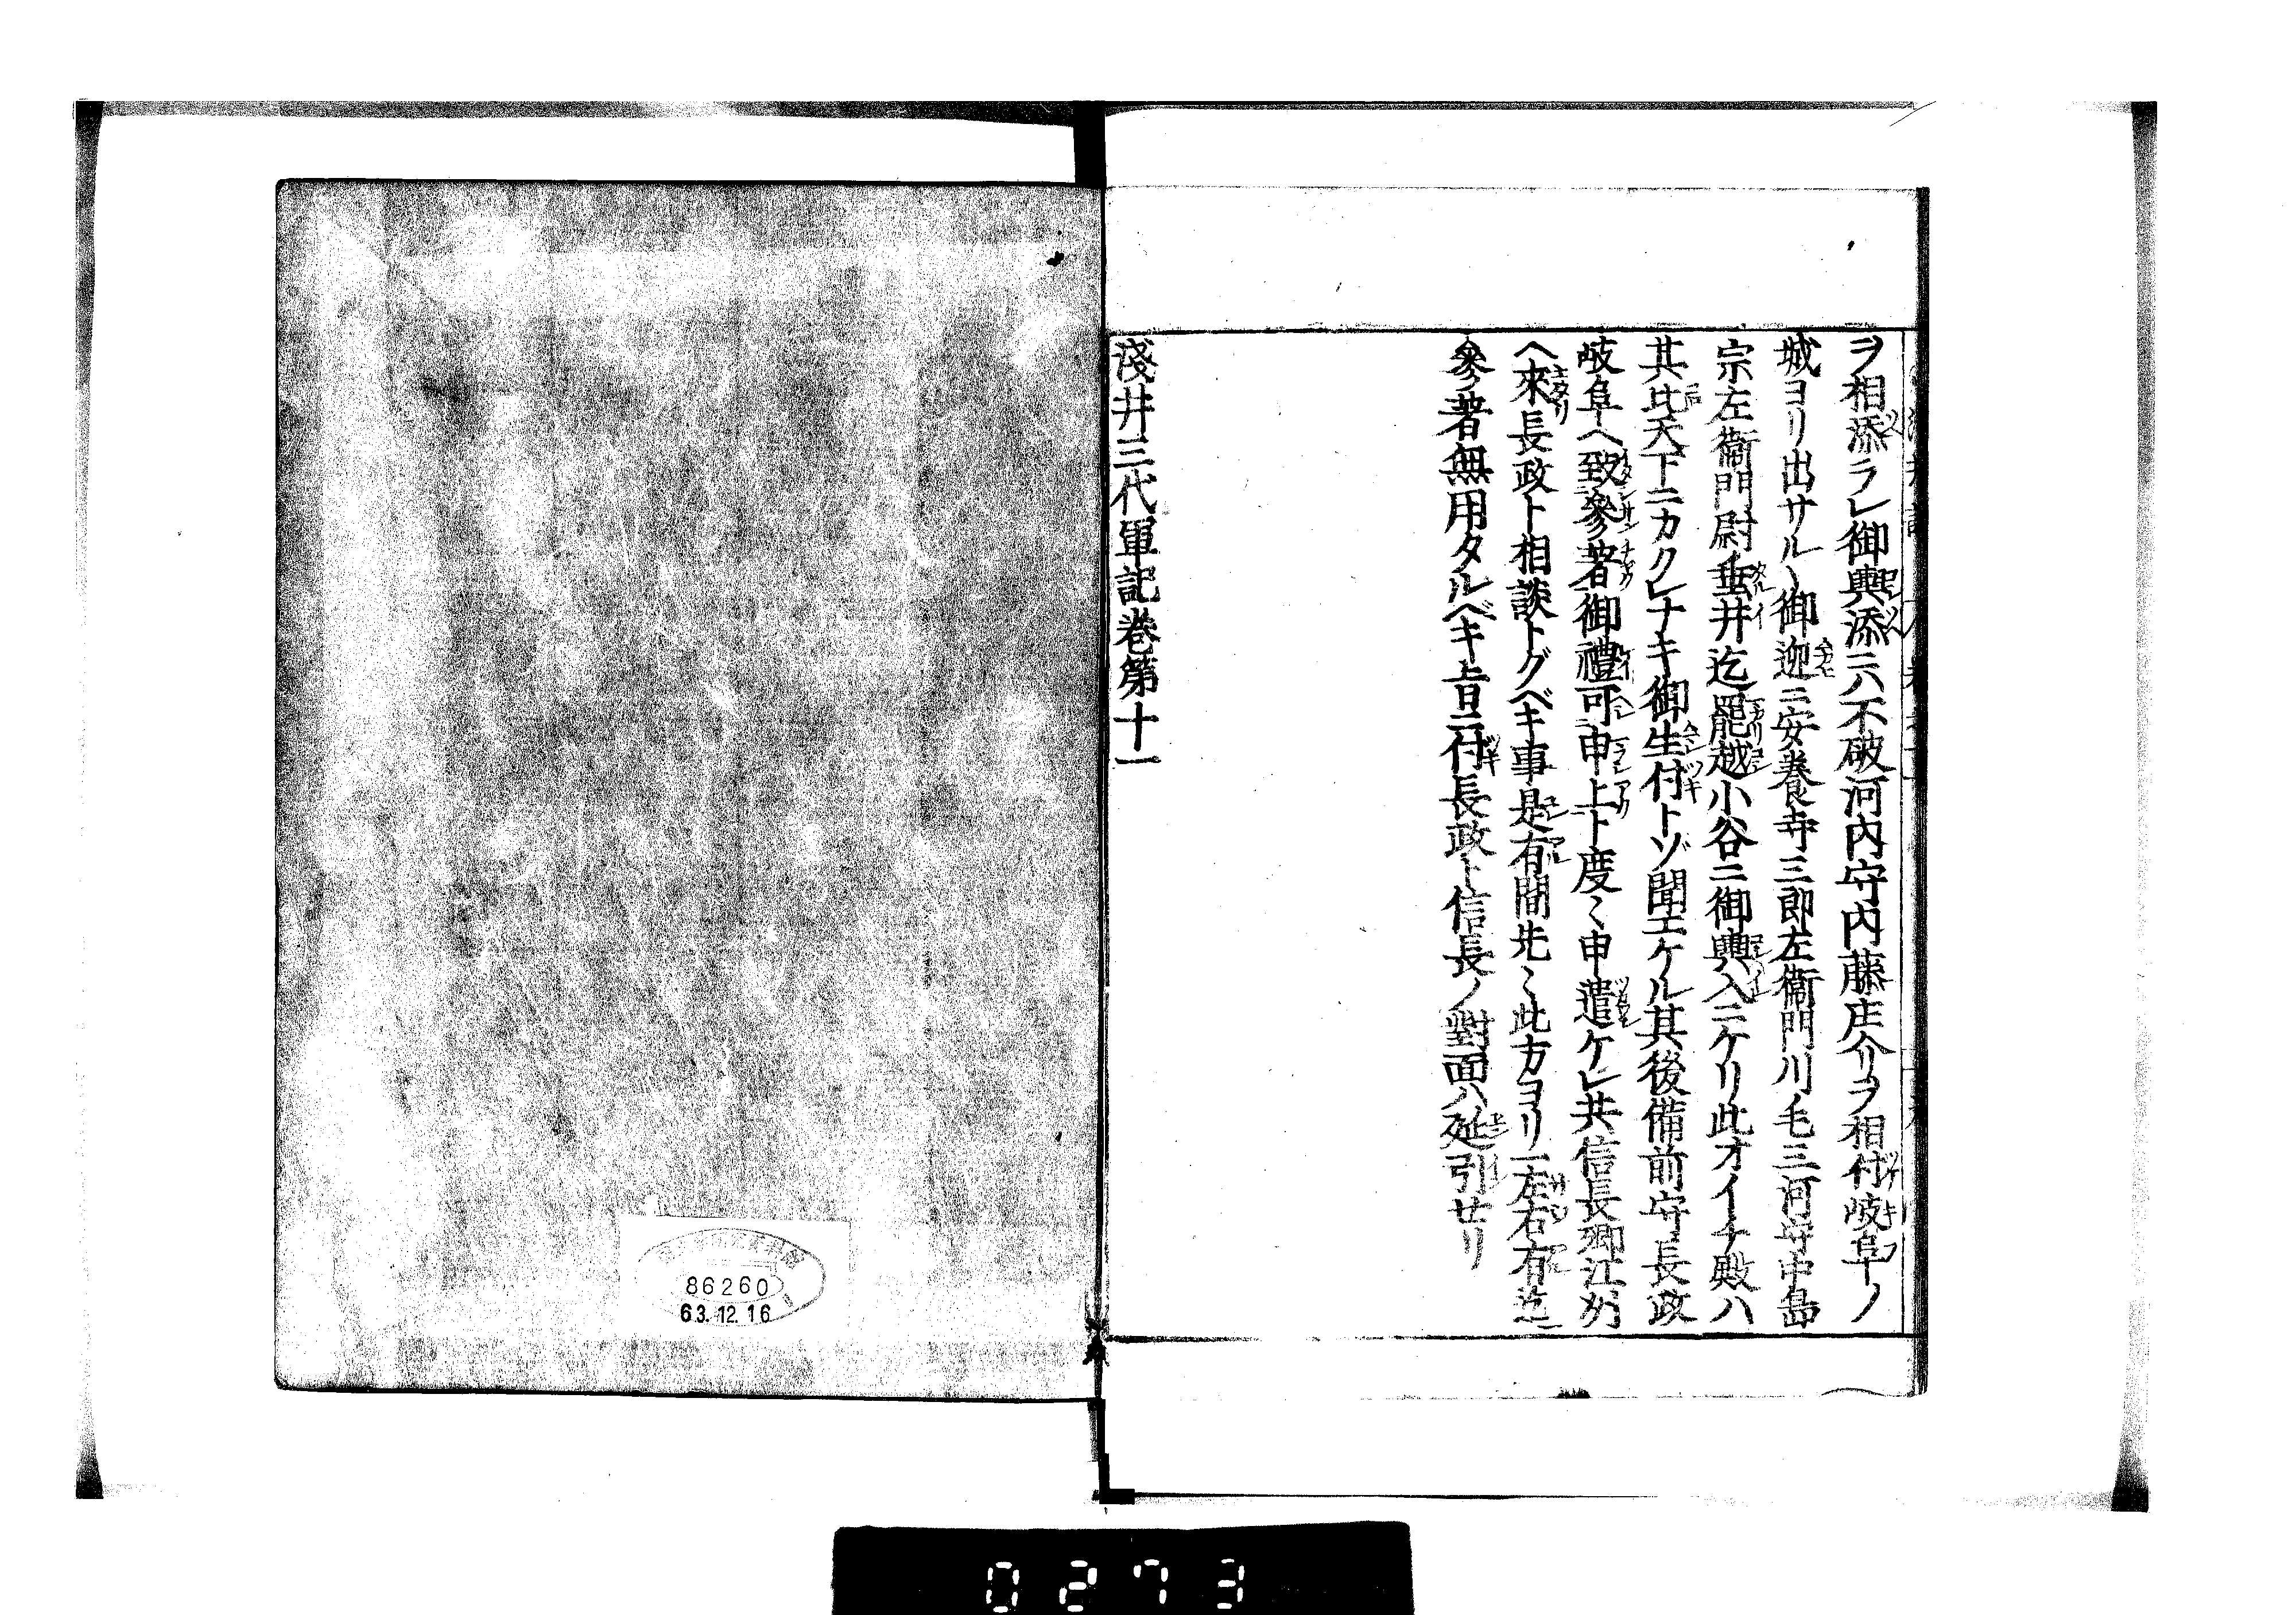 ヲ相添ラレ御輿添ニハ不破河内守内藤庄介リヲ相付岐阜ノ
城ヨリ出サル丶御迎ニ安養寺三郎左衞門川毛三河守中島
宗左衞門尉垂井迄罷越小谷ニ御輿入ニケリ此オイチ殿ハ
其比天下ニカクレナキ御生付トゾ聞エケル其後備前守長政
岐阜ヘ致參著御禮可申上ト度〻申遣ケレ共信長卿江州
ヘ來長政ト相談トグベキ事是有間先〻此方ヨリ一左右有迄
參著無用タルベキ旨ニ付長政ト信長ノ對面ハ延引せリ
淺井三代軍記卷第十一
86260
63.12.16
0273